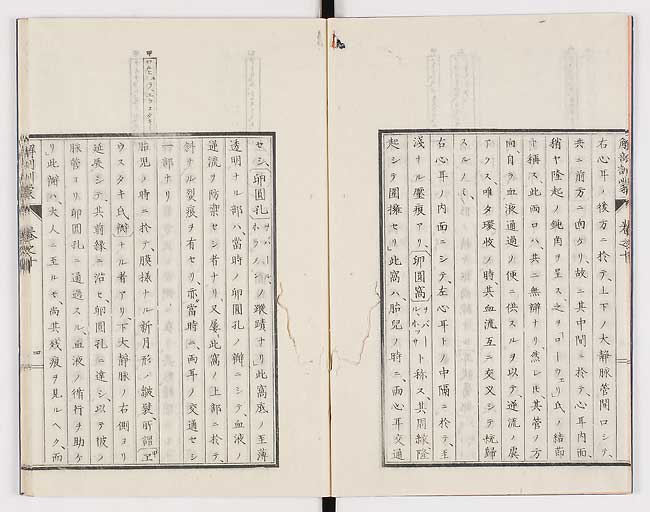 解剖訓蒙 卷之十
右心耳ノ後方ニ於テ、上下ノ大靜脉管開口シテ、
共ニ前方ニ面ケリ故ニ其中間ニ於テ、心耳内面、
稍ヤ隆起ノ鈍角ヲ呈ス、之ヲ「ローウェ」リ氏ノ結節
ト稱ス、此兩口ハ、共ニ無瓣ナリ然レ𪜈、其管ノ方
向自ラ血液通過ノ便ニ供スルヲ以テ、逆流ノ虞
アラス、唯タ環收ノ時、其血流互ニ交叉シテ旋歸
スルノミ、
右心耳ノ内面ニシテ、左心耳トノ中隔ニ於テ、
淺ナル壓痕アリ、卵圓窩 ト称ス、其周縁隆
起シテ圍擁セリ」此窩ハ、胎兒ノ時ニ、兩心耳交通
セシ 卵圓孔 ノ蹤蹟ナリ此窩底ノ至薄
透明ナル部ハ、當時ノ卵圓孔ノ瓣ニシテ、血液ノ
逆流ヲ防禦セシ者ナリ、又屡此窩ノ上部ニ於テ、
斜ナル裂痕ヲ有セリ、亦當時ニ、兩耳ノ交通セシ
一部ナリ
胎兒ノ時ニ於テ、膜樣ナル新月形ノ皺襞、所謂ヱ
ウスタキ氏瓣ナル者アリ、下大靜脉ノ右側ヨリ
延長シテ、其前縁ニ沿セ、卵圓孔ニ達シ、以テ彼ノ
脉管ヨリ卵圓孔ニ通過スル、血液ノ循行ヲ助ケ
リ此瓣ハ、大人ニ至ルモ、尚其残痕ヲ見ルヘク、而
解剖訓蒙 卷之十
四